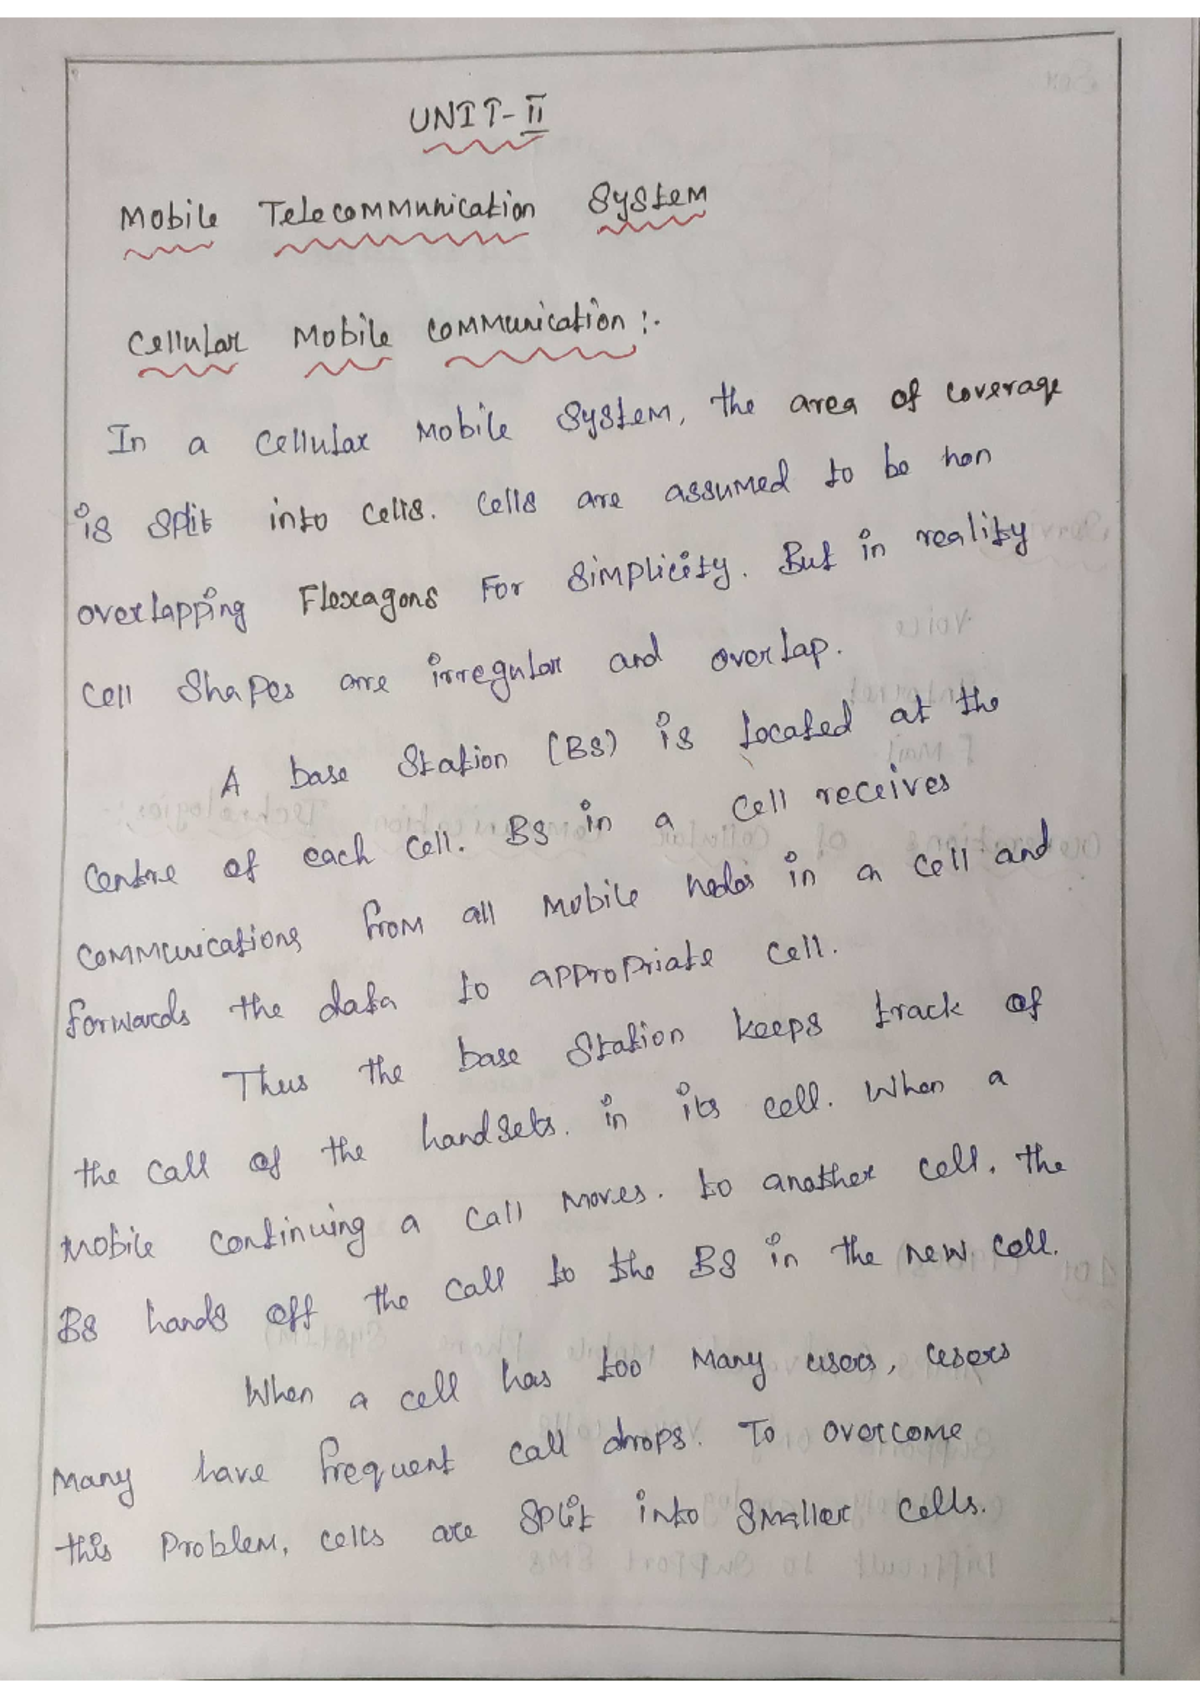 UNIT-II
Mobile Telecommunication System
Cellular Mobile Communication :-
In a cellular mobile system, the area of coverage
is split into cells. Cells are assumed to be non
overlapping Flexagons For simplicity. But in reality
Cell Shapes are irregular and overlap.
A base Station (BS) is located at the
Centre of each cell. BS in a cell receives
communications from all mobile nodes in a cell and
forwards the data to appropriate cell.
Thus the base Station keeps track of
the call of the handsets. in its cell. When a
Mobile continuing a call moves. to another cell. the
BS hands off the call to the BS in the new cell.
When a cell has too many users, users
Many have frequent call drops. To overcome
this Problem, cells are split into smaller cells.